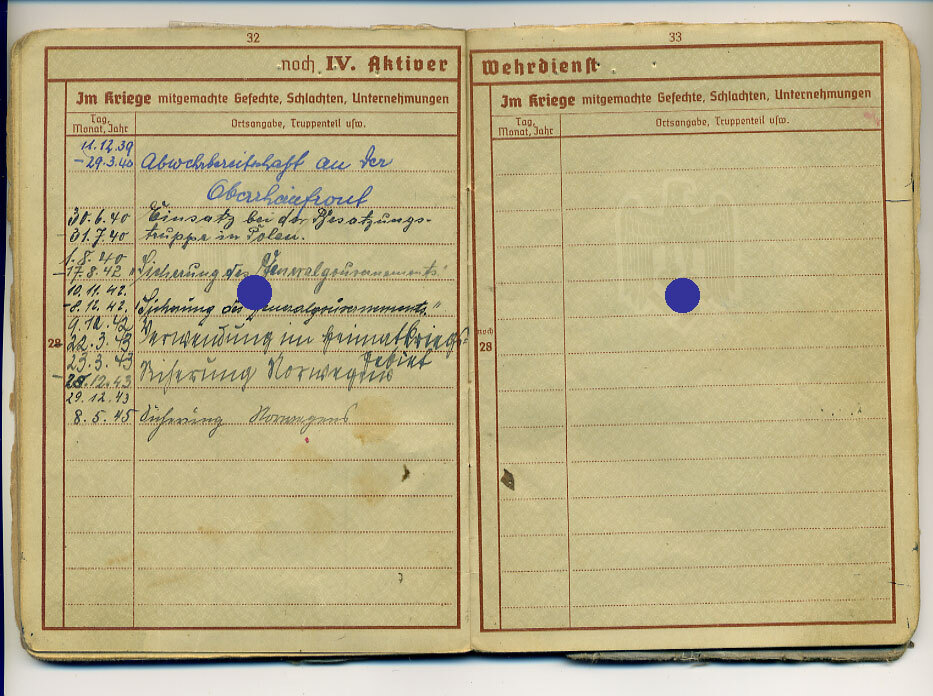 32
noch IV. Aktiver
Im Kriege mitgemachte Gefechte, Schlachten, Unternehmungen
Tag, Monat, Jahr
Ortsangabe, Truppenteil usw.
11.12.39
-29.3.40 Abwehrbereitschaft an der
Oberrheinfront
30.6.40 Einsatz bei der Besatzungs-
31.7.40 truppe in Polen.
1.8.40
-17.8.42 Sicherung des Generalgouvernements
10.11.42.
-8.12.42. Sicherung des Generalgouvernements
9.12.42
28 22.3.43 Verwendung im Heimatkriegs-
gebiet
23.3.43
-28.12.43 Sicherung Norwegens
29.12.43
8.5.45 Sicherung Norwegens
33
Wehrdienst
Im Kriege mitgemachte Gefechte, Schlachten, Unternehmungen
Tag, Monat, Jahr
Ortsangabe, Truppenteil usw.
noch
28